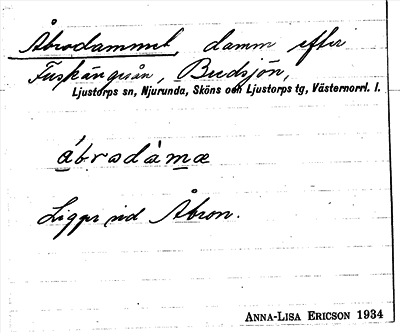 Åbrodammet, damm efter
Fuskängesån, Bredsjön,
Ljustorps sn, Njurunda, Sköns och Ljustorps tg, Västernorrl. l.
åbrodàmæ
Ligger vid Åbron.
ANNA-LISA ERICSON 1934